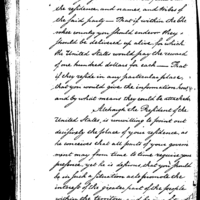 the residence and names, and tribes of
the said party — That if within the Che
rokee country you should endeavor they
should be delivered up alive, for which
the United States would pay the reward
of one hundred dollars for each — That
if they reside in any particular place,
that you would give the information how
and by what means they could be attacked
Although the President of the
United States, is unwilling to point out
the place of your residence, as
he conceives that all parts of your govern
ment may from time to time require your
presence, yet he is desirous that you should
be in such a situation as to promote the
interests of the greater part of the people
within the territory and